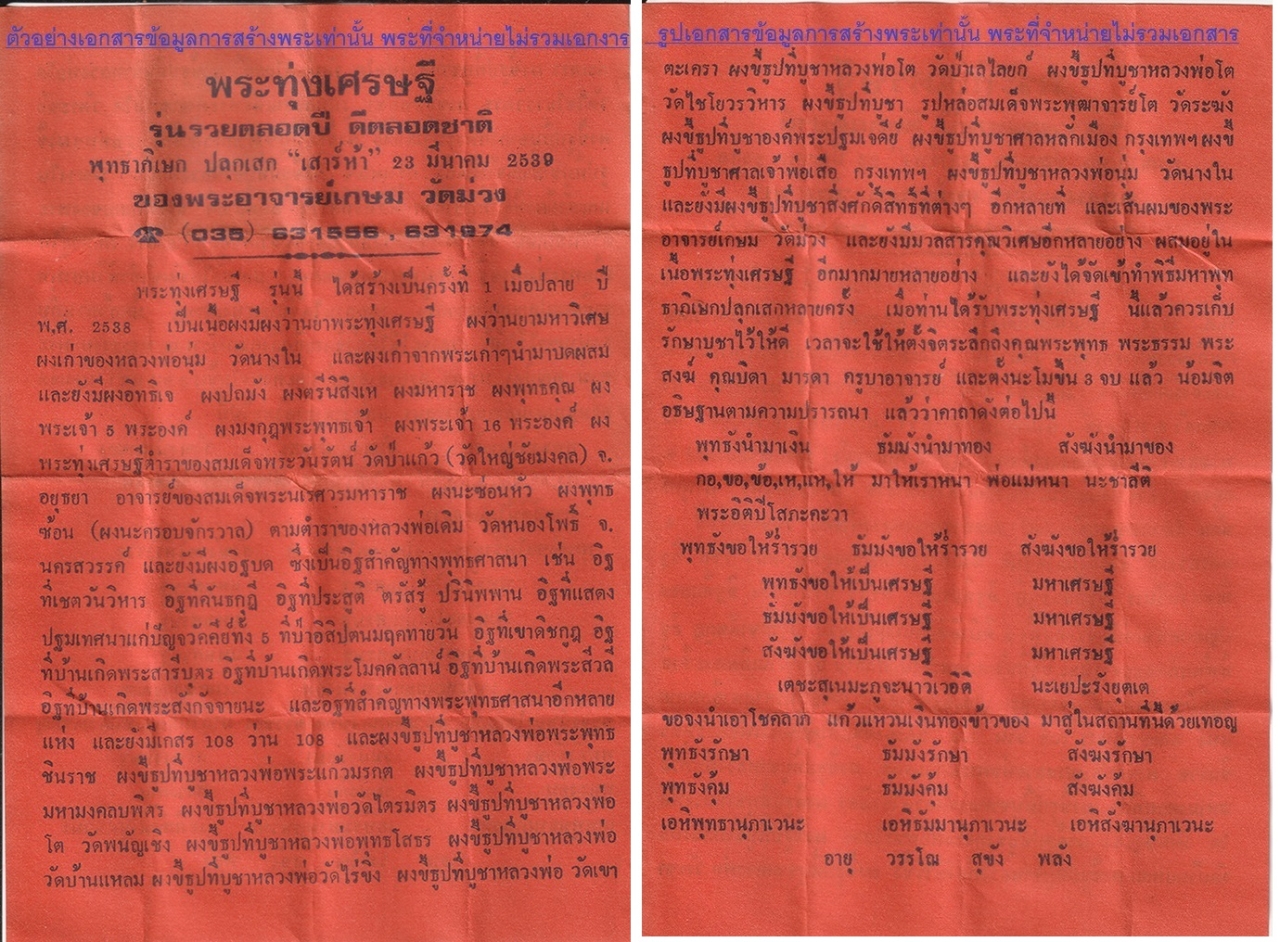 ตัวอย่างเอกสารข้อมูลการสร้างพระเท่านั้น พระที่จำหน่ายไม่รวมเอกงาร
พระทุ่งเศรษฐี
รุ่นรวยตลอดปี ดีตลอดชาติ
พุทธาภิเษก ปลุกเสก “เสาร์ห้า” 23 มีนาคม 2539
ของพระอาจารย์เกษม วัดม่วง
☎ (035) 631556 , 631974
พระทุ่งเศรษฐี รุ่นนี้ ได้สร้างเป็นครั้งที่ 1 เมื่อปลาย ปี
พ.ศ. 2538 เป็นเนื้อผงมีผงว่านยาพระทุ่งเศรษฐี ผงว่านยามหาวิเศษ
ผงเก่าของหลวงพ่อนุ่ม วัดนางใน และผงเก่าจากพระเก่าๆนำมาบดผสม
และยังมีผงอิทธิเจ ผงปถมัง ผงตรีนิสิงเห ผงมหาราช ผงพุทธคุณ ผง
พระเจ้า 5 พระองค์ ผงมงกุฎพระพุทธเจ้า ผงพระเจ้า 16 พระองค์ ผง
พระทุ่งเศรษฐีตำราของสมเด็จพระวันรัตน์ วัดป่าแก้ว (วัดใหญ่ชัยมงคล) จ.
อยุธยา อาจารย์ของสมเด็จพระนเรศวรมหาราช ผงนะซ่อนหัว ผงพุทธ
ซ้อน (ผงนะครอบจักรวาล) ตามตำราของหลวงพ่อเดิม วัดหนองโพธิ์ จ.
นครสวรรค์ และยังมีผงอิฐบด ซึ่งเป็นอิฐสำคัญทางพุทธศาสนา เช่น อิฐ
ที่เชตวันวิหาร อิฐที่คันธกุฎี อิฐที่ประสูติ ตรัสรู้ ปรินิพพาน อิฐที่แสดง
ปฐมเทศนาแก่ปัญจวัคคีย์ทั้ง 5 ที่ป่าอิสิปตนมฤคทายวัน อิฐที่เขาคิชกูฏ อิฐ
ที่บ้านเกิดพระสารีบุตร อิฐที่บ้านเกิดพระโมคคัลลาน์ อิฐที่บ้านเกิดพระสีวลี
อิฐที่บ้านเกิดพระสังกัจจายนะ และอิฐที่สำคัญทางพระพุทธศาสนาอีกหลาย
แห่ง และยังมีเกสร 108 ว่าน 108 และผงขี้ธูปที่บูชาหลวงพ่อพระพุทธ
ชินราช ผงขี้ธูปที่บูชาหลวงพ่อพระแก้วมรกต ผงขี้ธูปที่บูชาหลวงพ่อพระ
มหามงคลบพิตร ผงขี้ธูปที่บูชาหลวงพ่อวัดไตรมิตร ผงขี้ธูปที่บูชาหลวงพ่อ
โต วัดพนัญเชิง ผงขี้ธูปที่บูชาหลวงพ่อพุทธโสธร ผงขี้ธูปที่บูชาหลวงพ่อ
วัดบ้านแหลม ผงขี้ธูปที่บูชาหลวงพ่อวัดไร่ขิง ผงขี้ธูปที่บูชาหลวงพ่อ วัดเขา
รูปเอกสารข้อมูลการสร้างพระเท่านั้น พระที่จำหน่ายไม่รวมเอกสาร
ตะเครา ผงขี้ธูปที่บูชาหลวงพ่อโต วัดป่าเลไลยก์ ผงขี้ธูปที่บูชาหลวงพ่อโต
วัดไชโยวรวิหาร ผงขี้ธูปที่บูชา รูปหล่อสมเด็จพระพุฒาจารย์โต วัดระฆัง
ผงขี้ธูปที่บูชาองค์พระปฐมเจดีย์ ผงขี้ธูปที่บูชาศาลหลักเมือง กรุงเทพฯ ผงขี้
ธูปที่บูชาศาลเจ้าพ่อเสือ กรุงเทพฯ ผงขี้ธูปที่บูชาหลวงพ่อนุ่ม วัดนางใน
และยังมีผงขี้ธูปที่บูชาสิ่งศักดิ์สิทธิ์ที่ต่างๆ อีกหลายที่ และเส้นผมของพระ
อาจารย์เกษม วัดม่วง และยังมีมวลสารคุณวิเศษอีกหลายอย่าง ผสมอยู่ใน
เนื้อพระทุ่งเศรษฐี อีกมากมายหลายอย่าง และยังได้จัดเข้าทำพิธีมหาพุท
ธาภิเษกปลุกเสกหลายครั้ง เมื่อท่านได้รับพระทุ่งเศรษฐี นี้แล้วควรเก็บ
รักษาบูชาไว้ให้ดี เวลาจะใช้ให้ตั้งจิตระลึกถึงคุณพระพุทธ พระธรรม พระ
สงฆ์ คุณบิดา มารดา ครูบาอาจารย์ และตั้งนะโมขึ้น 3 จบ แล้ว น้อมจิต
อธิษฐานตามความปรารถนา แล้วว่าคาถาดังต่อไปนี้
พุทธังนำมาเงิน ธัมมังนำมาทอง สังฆังนำมาของ
กอ,ขอ,ข้อ,เห,แห,ให้ มาให้เราหนา พ่อแม่หนา นะชาลีติ
พระอิติปิโสภะคะวา
พุทธังขอให้ร่ำรวย ธัมมังขอให้ร่ำรวย สังฆังขอให้ร่ำรวย
พุทธังขอให้เป็นเศรษฐี มหาเศรษฐี
ธัมมังขอให้เป็นเศรษฐี มหาเศรษฐี
สังฆังขอให้เป็นเศรษฐี มหาเศรษฐี
เตชะสุเนมะภูจะนาวิเวอิติ นะเยปะรังยุตเต
ขอจงนำเอาโชคลาภ แก้วแหวนเงินทองข้าวของ มาสู่ในสถานที่นี้ด้วยเทอญ
พุทธังรักษา ธัมมังรักษา สังฆังรักษา
พุทธังคุ้ม ธัมมังคุ้ม สังฆังคุ้ม
เอหิพุทธานุภาเวนะ เอหิธัมมานุภาเวนะ เอหิสังฆานุภาเวนะ
อายุ วรรโณ สุขัง พลัง